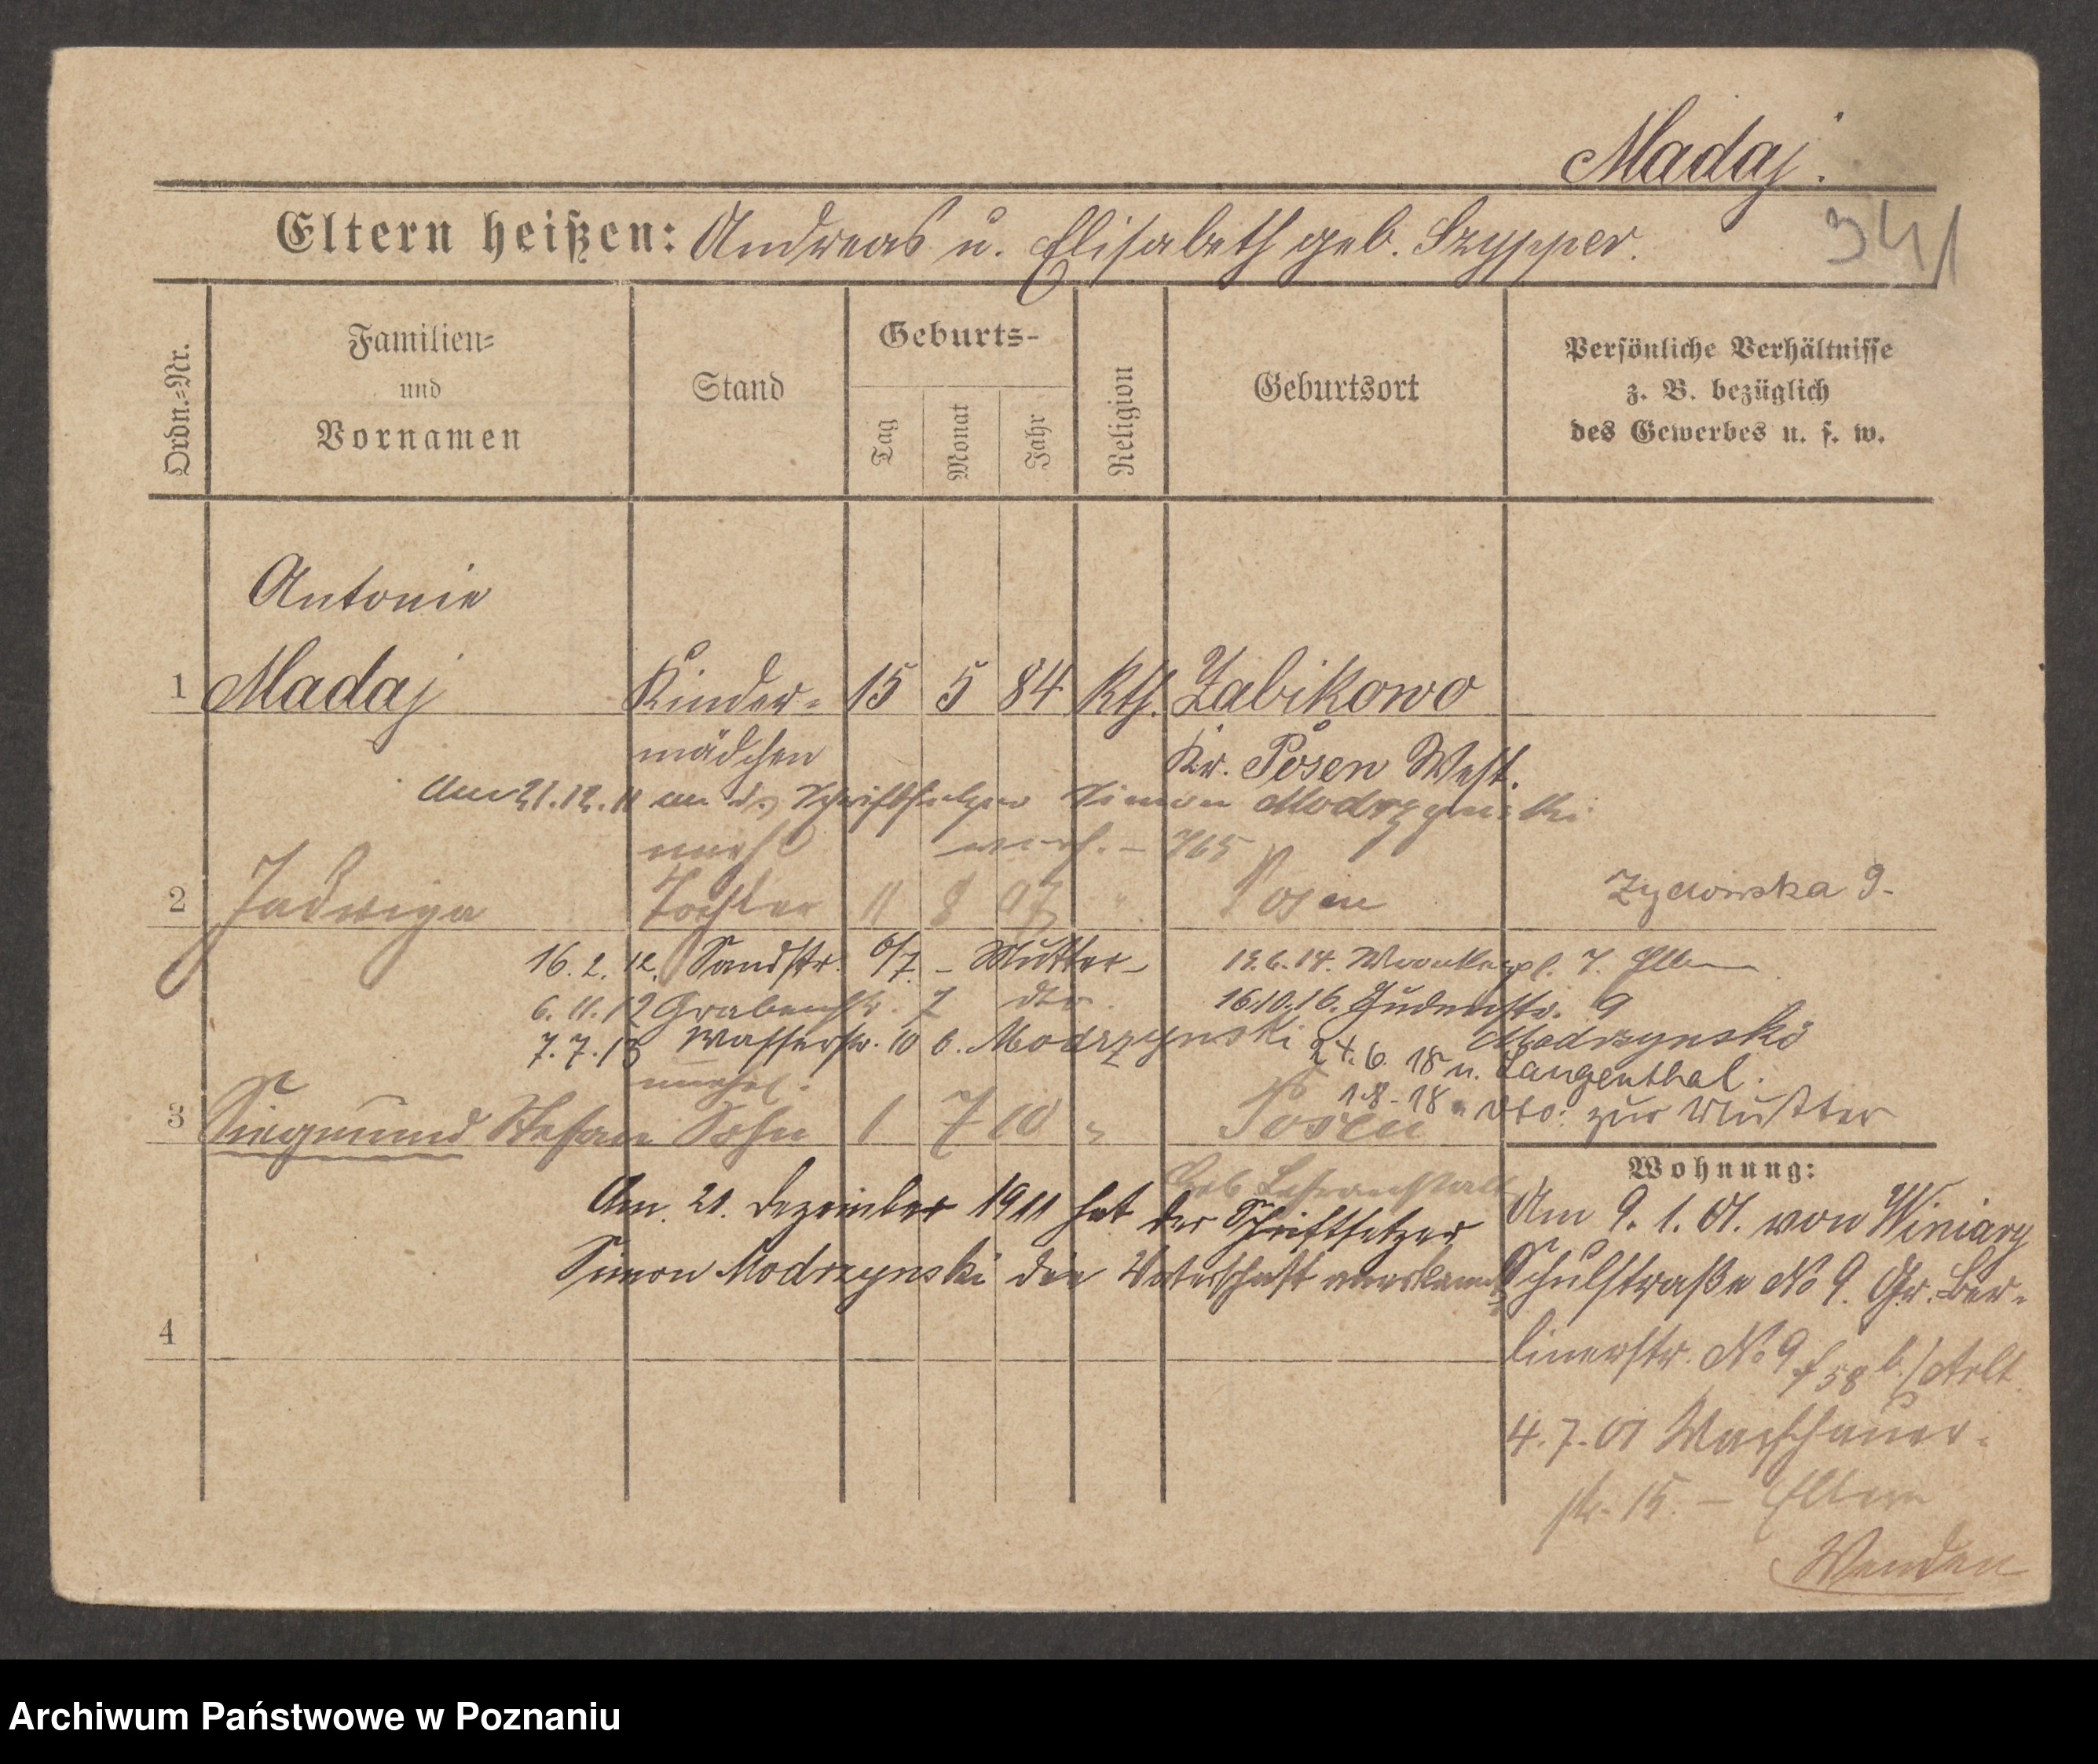 Madaj.
Eltern heißen: Andreas u. Elisabeth geb. Szypper.
341
Ordn.=Nr.
Familien=
und
Vornamen
Stand
Geburts-
Tag
Monat
Jahr
Religion
Geburtsort
Persönliche Verhältnisse
z. B. bezüglich
des Gewerbes u. s. w.
Antonie
1 Madaj Kinder= 15 5 84 Kth. Zabikowo
mädchen Kr. Posen West.
Am 21.12.11 an d. Schriftsetzer Simon Modrzynski
unehl verh. - 765
2 Jadwiga Tochter 11 8 07 " Posen Zydowska 9-
16. 2. 12. Sandstr. 6/7 - Mutter -
6. 11. 12 Grabenstr. 7 dto.
7. 7. 13 Wasserstr. 10 b. Modrzynski
14. Wronkerpl. 7. Eltern
16.10.16. Judenstr. 9
Modrzynski
24. 6. 18 n. Langenthal.
1.8-18 " dto: zur Mutter
unehel.
3 Siegmund Stefan Sohn 1 7 10 " Posen
Geb. Lehranstalt
Am. 21. Dezember 1911 hat der Schriftsetzer
Simon Modrzynski die Vaterschaft anerkannt
4
Wohnung:
Am 9. 1. 01. von Winiary
Schulstraße No 9. Gr. Ber=
linerstr. No 9 b./Arlt.
4. 7. 01
str. 15. - Eltern
Wenden
Archiwum Państwowe w Poznaniu